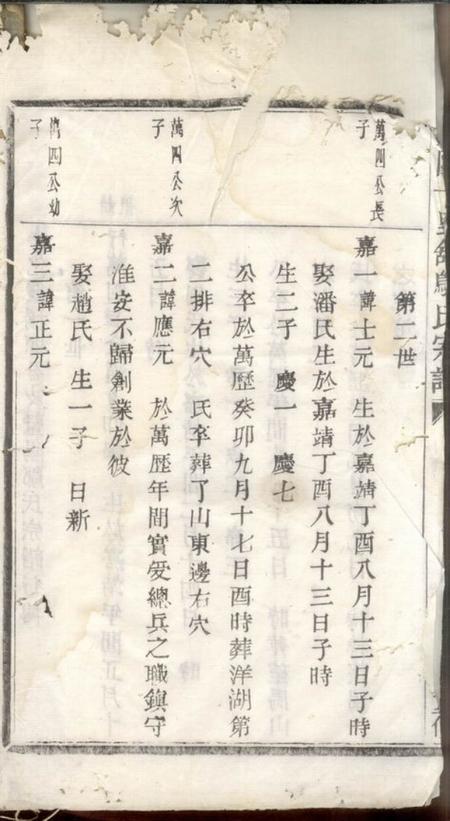 第二世
萬四公長子
嘉一諱士元 生於嘉靖丁酉八月十三日子時
娶潘氏生於嘉靖丁酉八月十三日子時
生二子 慶一 慶七
公卒於萬歷癸卯九月十七日酉時葬洋湖第
二排右穴 氏卒葬了山東邊右穴
萬四公次子
嘉二諱應元 於萬歷年間實受總兵之職鎮守
淮安不歸創業於彼
娶趙氏 生一子 日新
萬四公幼子
嘉三諱正元
氏宗譜